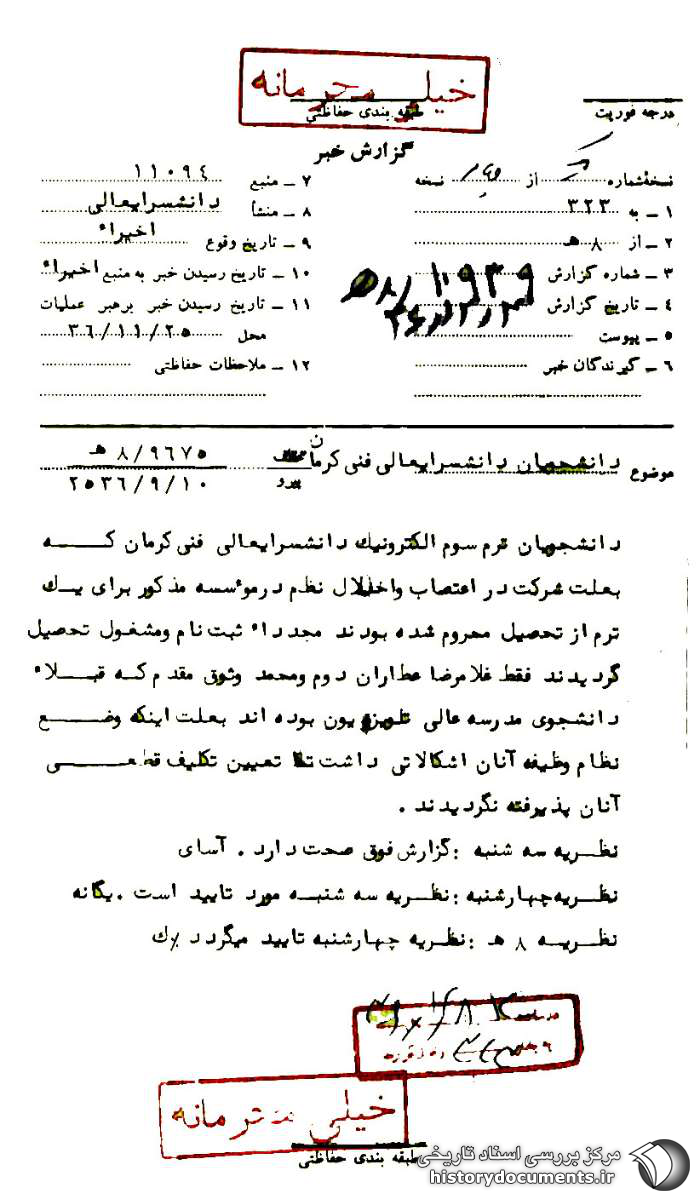 خیلی محرمانه
طبقه بندی حفاظتی
درجه فوریت
گزارش خبر
نسخه‌شماره از نسخه
۱ ـ به ۳۲۳
۲ ـ از ۸ هـ
۳ ـ شماره گزارش ۱۱۹۳۹ / ۸هـ
۴ ـ تاریخ گزارش
۵ ـ پیوست
۶ ـ گیرندگان خبر
۷ ـ منبع ۱۱۰۹۴
۸ ـ منشأ دانشسرایعالی
۹ ـ تاریخ وقوع اخیراً
۱۰ ـ تاریخ رسیدن خبر به منبع اخیراً
۱۱ ـ تاریخ رسیدن خبر برهبر عملیات
محل ۳۶/۱۱/۲۵
۱۲ ـ ملاحظات حفاظتی
موضوع دانشجویان دانشسرایعالی فنی کرمان
پیرو ۸/۹۶۷۵ هـ
۲۵۳۶/۹/۱۰
دانشجویان ترم سوم الکترونیک دانشسرایعالی فنی کرمان کـــه
بعلت شرکت در اعتصاب واخلال نظم درموئسسه مذکور برای یـک
ترم از تحصیل محروم شده بودند مجدداً ثبت نام ومشغول تحصیل
گردیدند فقط غلامرضا عطاران دوم ومحمد وثوق مقدم کـه قبـلاً
دانشجوی مدرسه عالی تلویزیون بوده اند بعلت اینکه وضـــع
نظام وظیفه آنان اشکالاتی داشت تا تعیین تکلیف قطعـــی
آنان پذیرفته نگردیدند .
نظـریه سه شنبه :گزارش فوق صحت دارد . آسای
نظـریه‌چهارشنبه :نظـریه سه شنبـه مورد تایید است .یگانه
نظـریـه ۸ هـ :نظـریه چهارشنبه تایید میگردد ک
خیلی محرمانه
طبقه بندی حفاظتی
مرکز بررسی اسناد تاریخی
historydocuments.ir